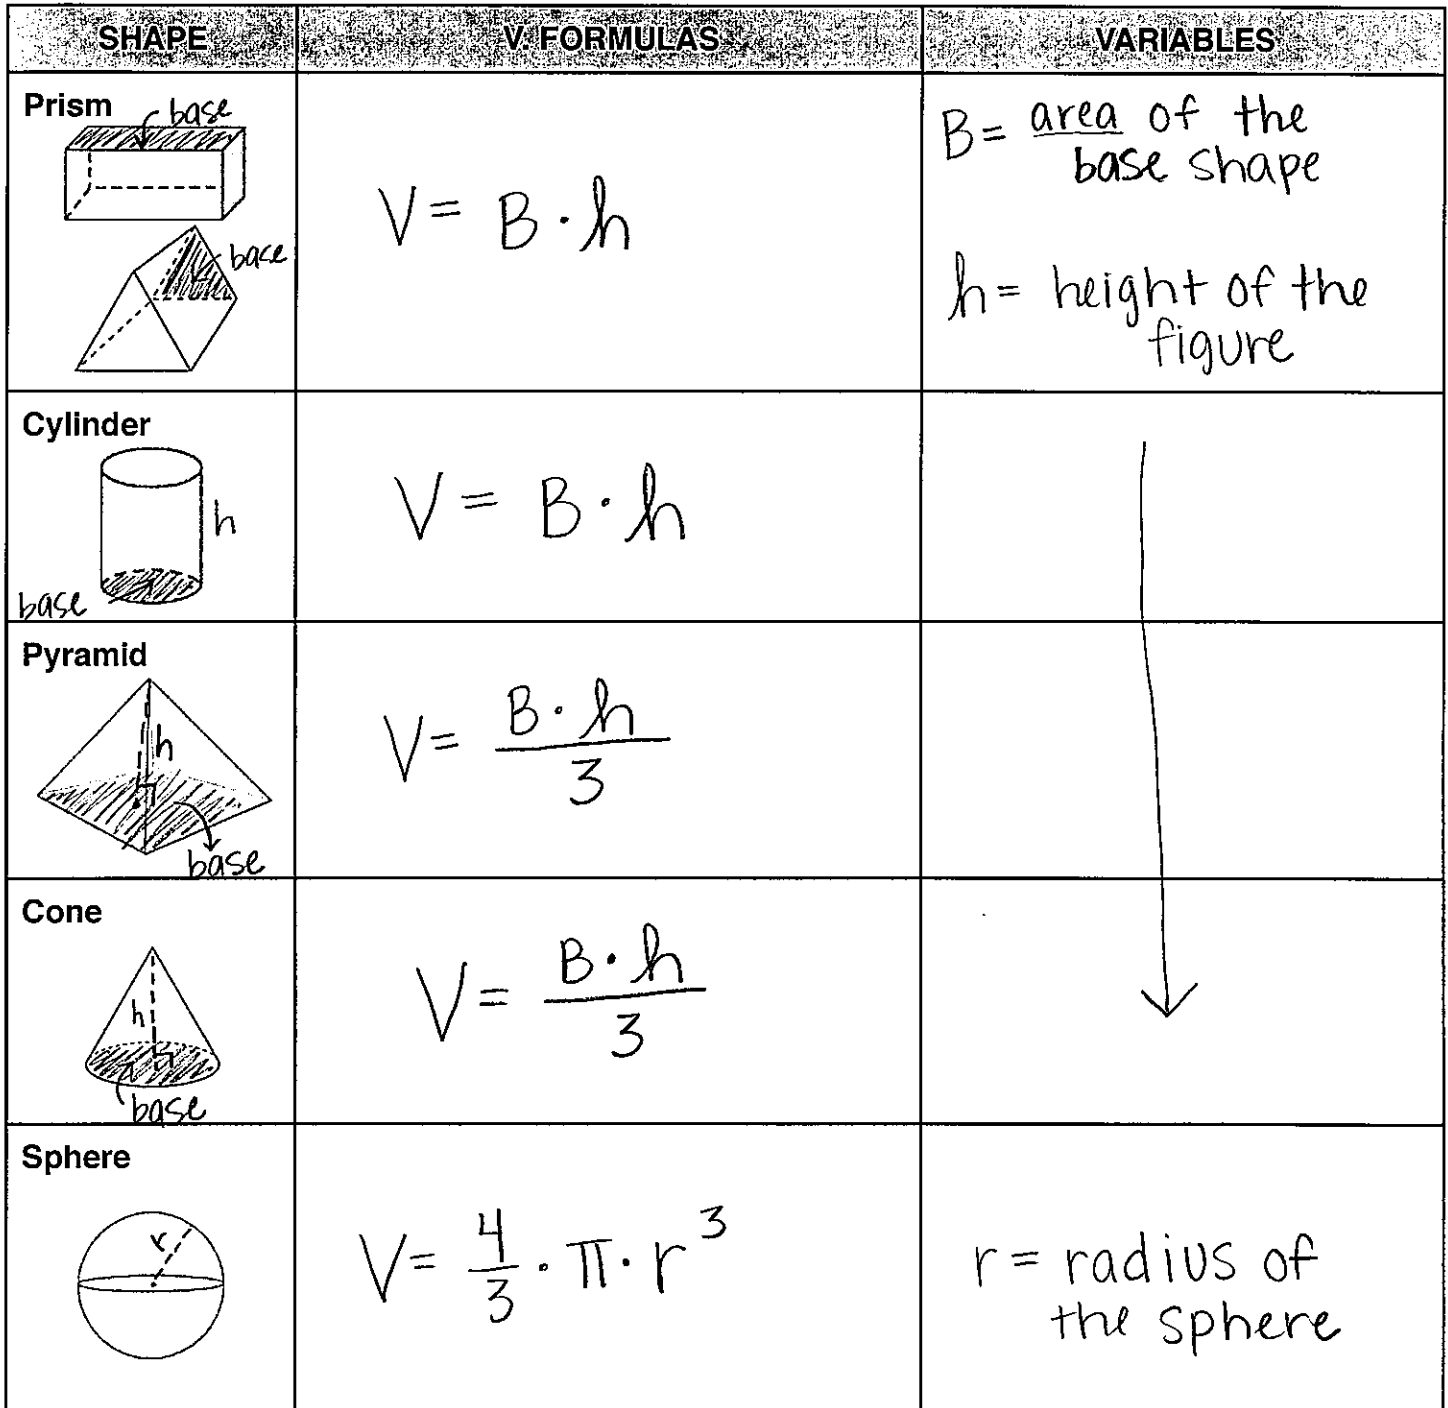 SHAPE V. FORMULAS VARIABLES
Prism
base
base
V = B · h
B = area of the
base shape
h = height of the
figure
Cylinder
h
base
V = B · h
Pyramid
h
base
V = B · h
3
Cone
h
base
V = B · h
3
Sphere
r
V = 4/3 · π · r³
r = radius of
the sphere